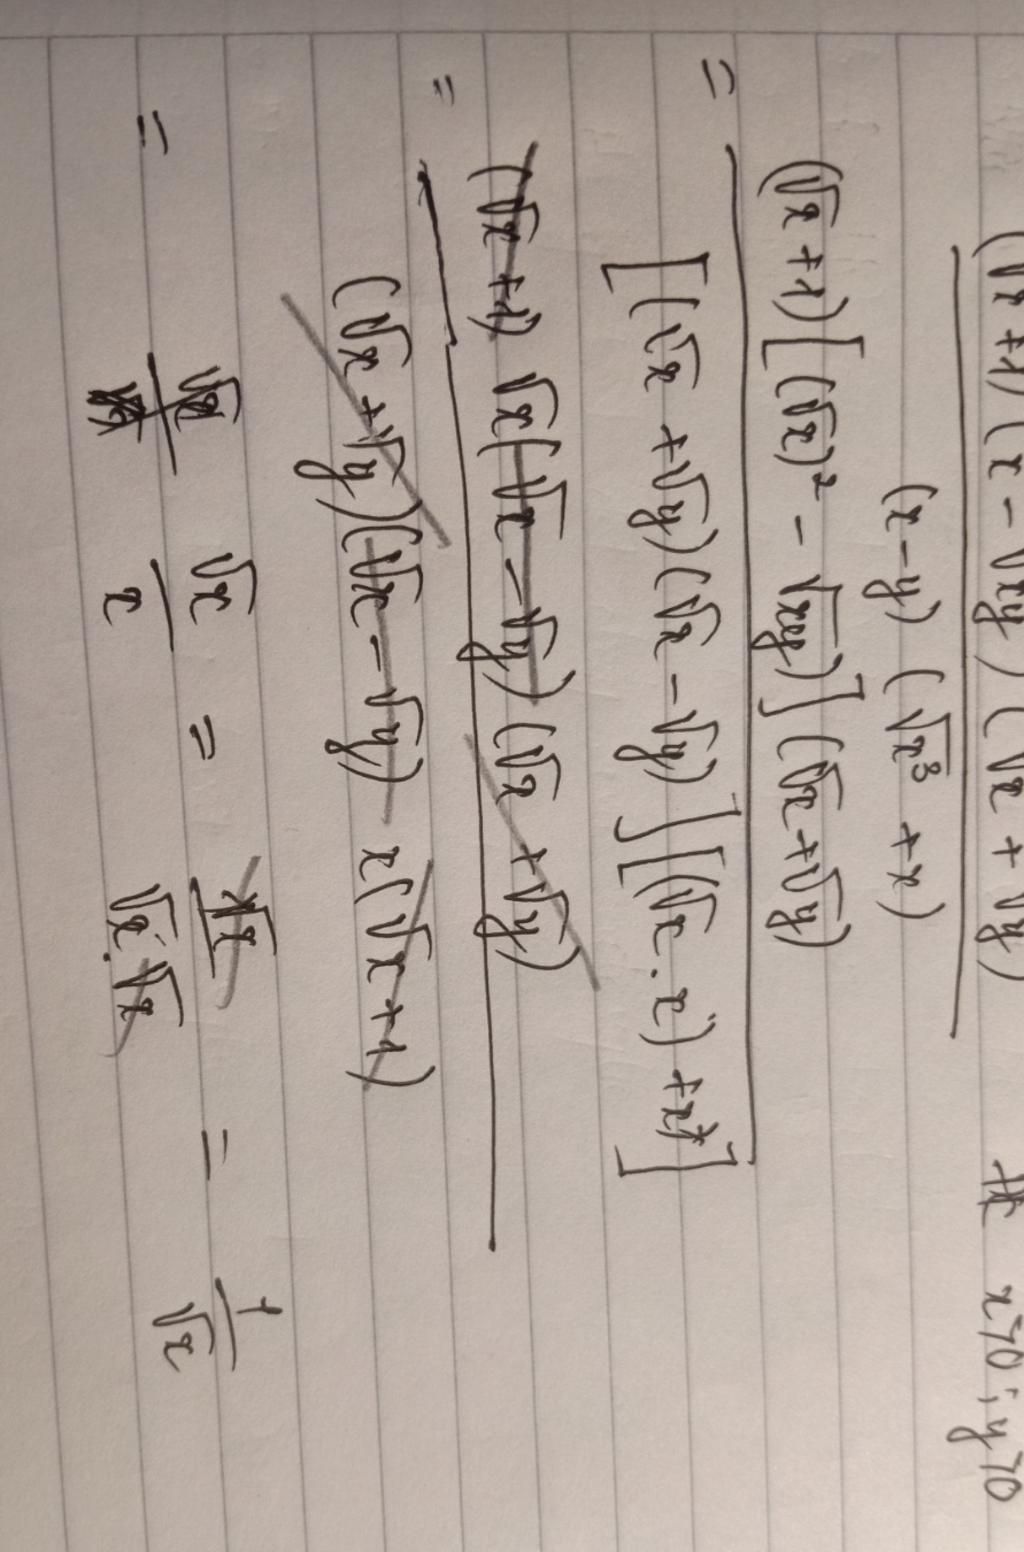 (√x + 1) (x - √xy) (√x + √y) x>0; y>0
(x - y) (√x³ + x)
= (√x + 1) [(√x)² - √xy)] (√x + √y)
[(√x + √y) (√x - √y)] [(√x . x) + x]
= (√x + 1) √x (√x - √y) (√x + √y)
(√x + √y) (√x - √y) x (√x + 1)
= √x/x = √x/√x.√x = 1/√x